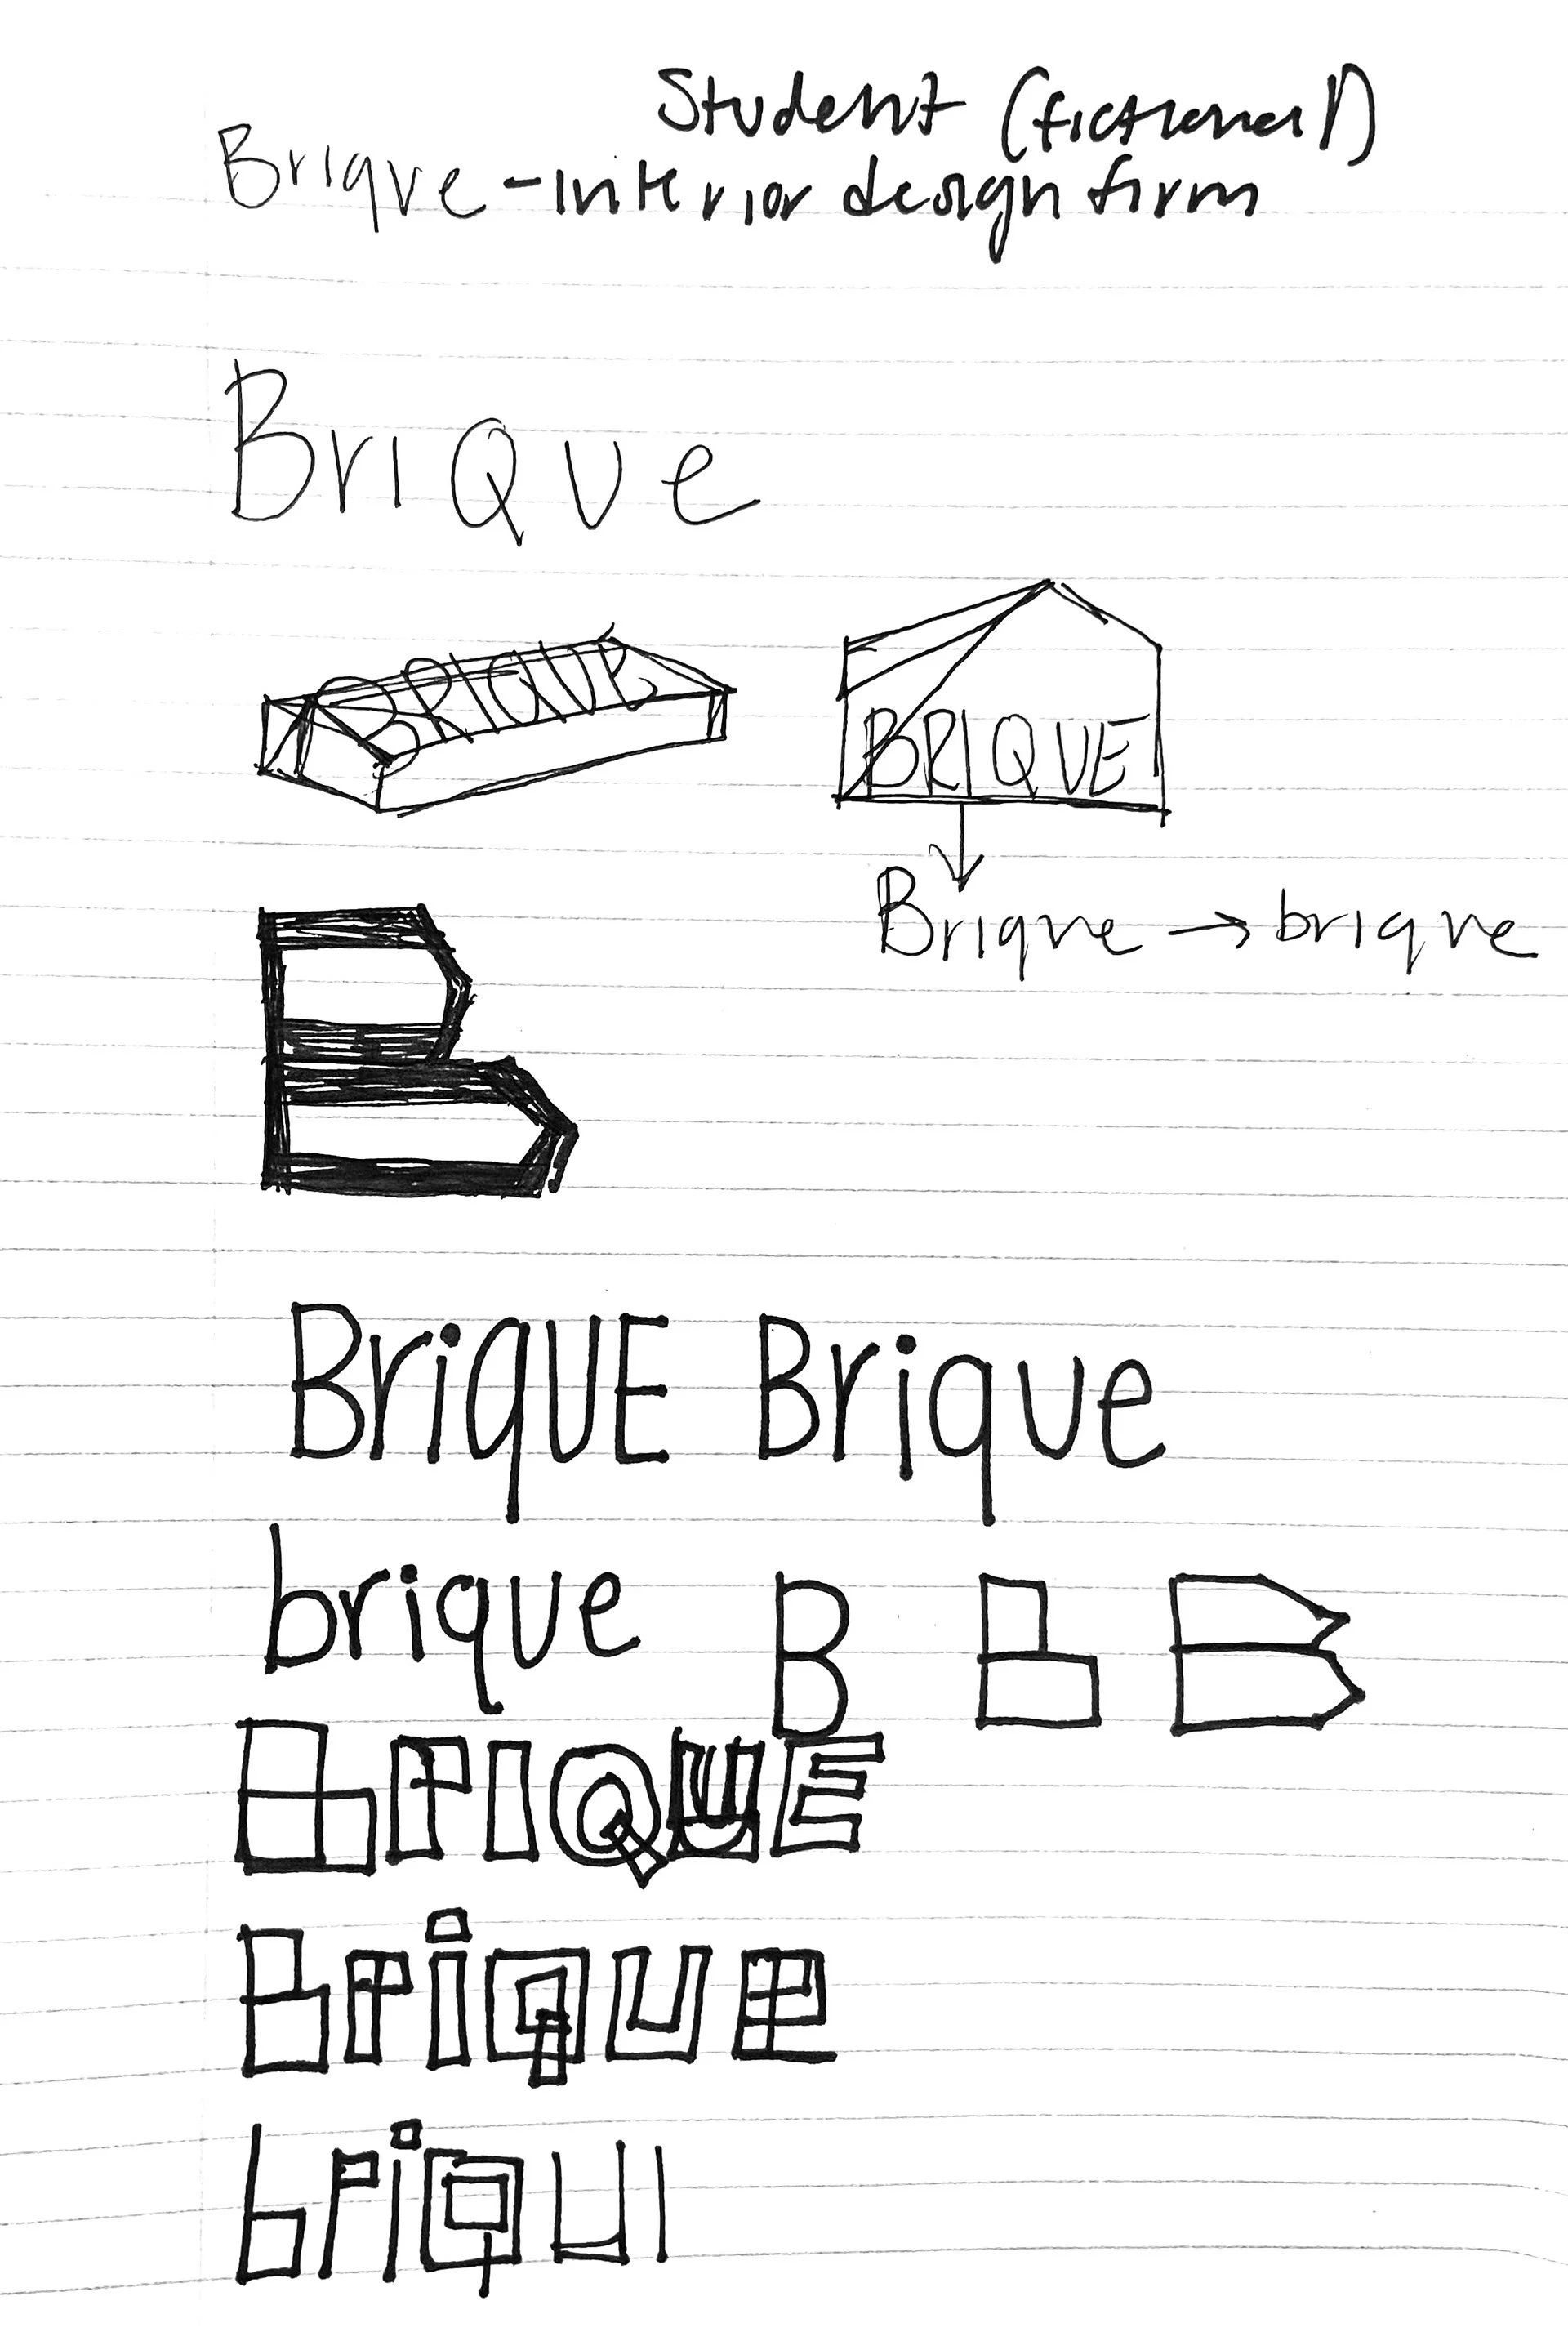 Student (fictional)
Brique - interior design firm
BriQue
BRIQUE BRIQUE
Brique → brique
B
BriqUE Brique
brique B B B
BrIQUE
Brique
briqu